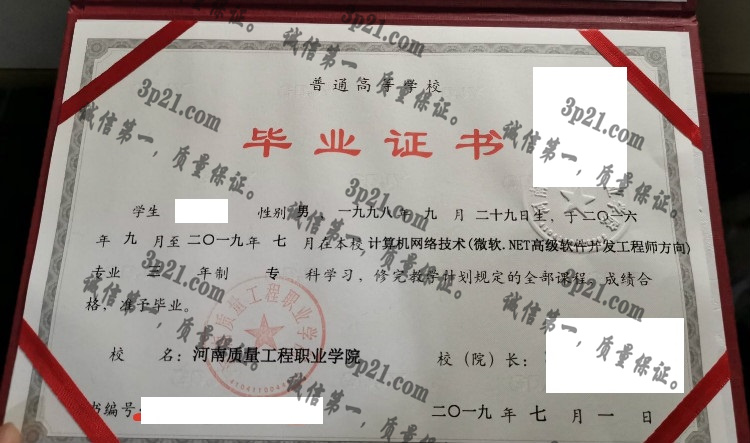 普通高等学校
毕业证书
学生 性别 男 、一九九八年 九 月 二十九日生，于二〇一六
年 九 月至二〇一九年 七 月在本校 计算机网络技术(微软.NET高级软件开发工程师方向)
专业 三 年制 专 科学习，修完教学计划规定的全部课程，成绩合
格，准予毕业。
校 名：河南质量工程职业学院
校（院）长：
书编号
二〇一九年 七 月 一 日
3p21.com
诚信第一，质量保证。
3p21.com
诚信第一，质量保证。
3p21.com
诚信第一，质量保证。
3p21.com
诚信第一，质量保证。
3p21.com
诚信第一，质量保证。
3p21.com
诚信第一，质量保证。
3p21.com
诚信第一，质量保证。